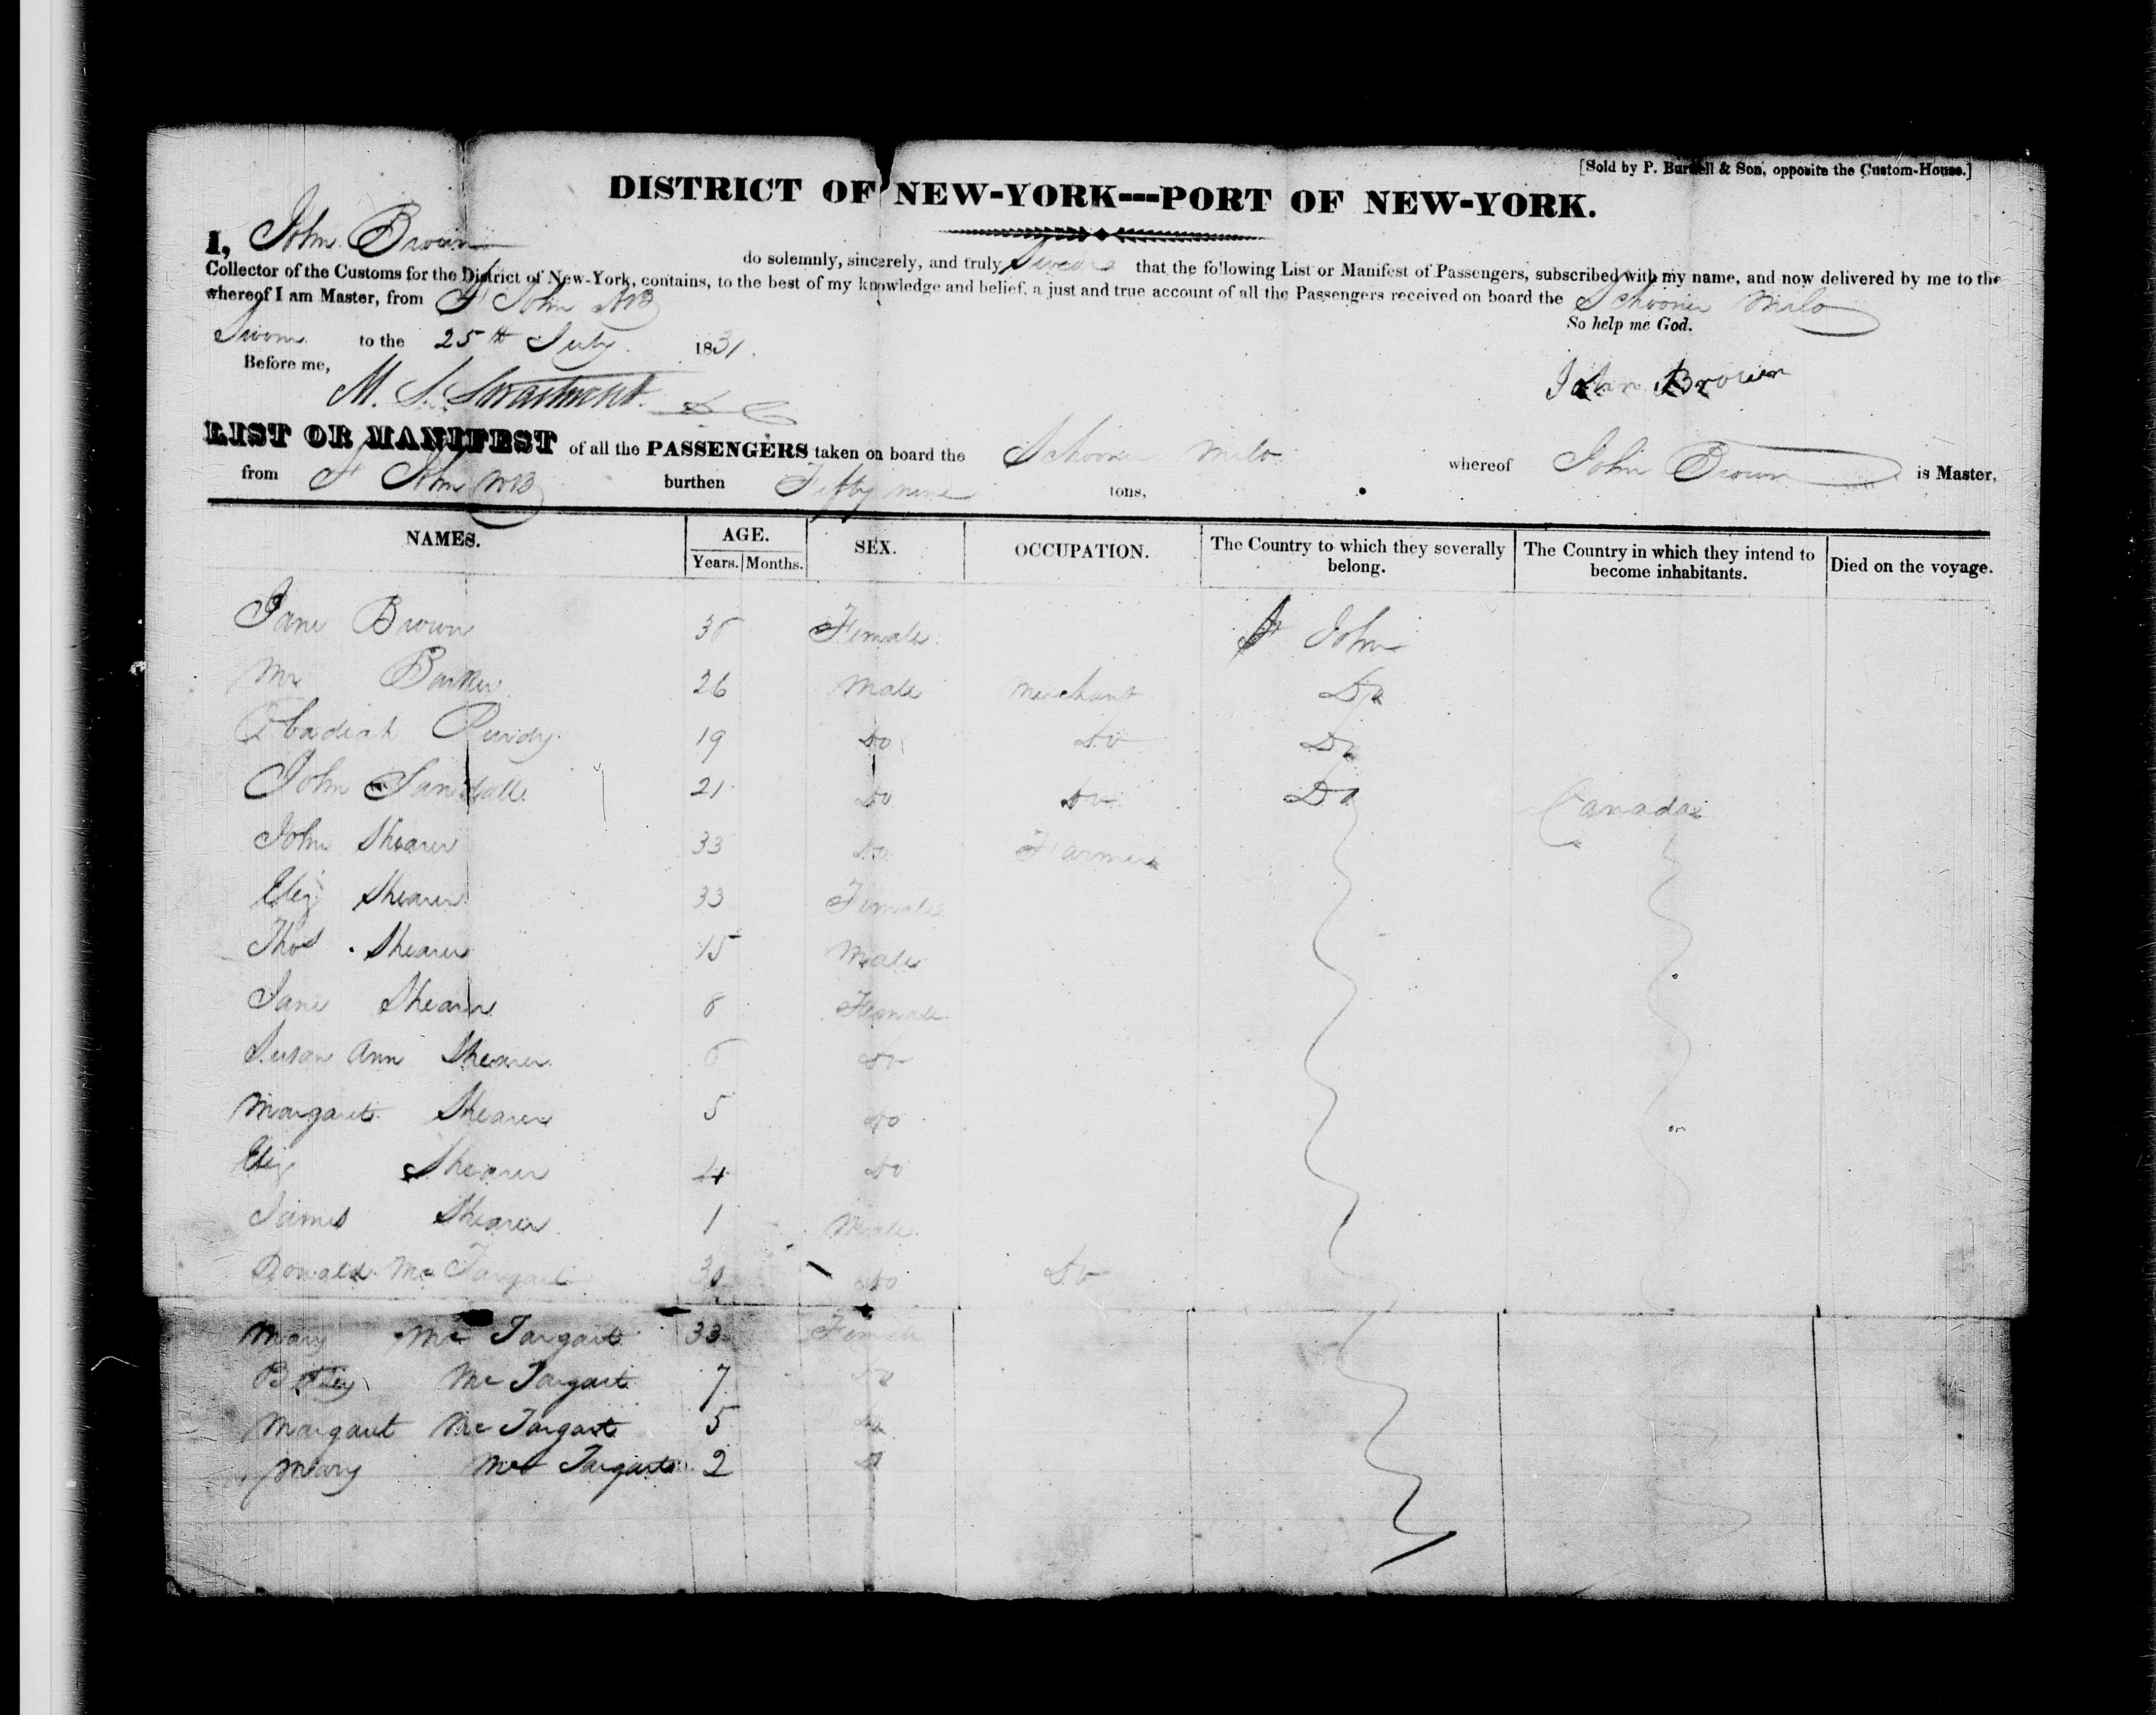 [Sold by P. Burtsell & Son, opposite the Custom-House.]
DISTRICT OF NEW-YORK---PORT OF NEW-YORK.
I, John Brown do solemnly, sincerely, and truly Swear that the following List or Manifest of Passengers, subscribed with my name, and now delivered by me to the
Collector of the Customs for the District of New-York, contains, to the best of my knowledge and belief, a just and true account of all the Passengers received on board the Schooner Milo
whereof I am Master, from St John NB
So help me God.
Sworn to the 25th July 1831.
Before me,
John Brown
M. S.
LIST OR MANIFEST of all the PASSENGERS taken on board the Schooner Milo whereof John Brown is Master,
from St John NB burthen Fifty nine tons,
NAMES. AGE. SEX. OCCUPATION. The Country to which they severally belong. The Country in which they intend to become inhabitants. Died on the voyage.
Years. Months.
Jane Brown Female St John
Mr Barker 26 Male Merchant Do
Obadiah Purdy 19 Do Do Do
John 21 Do Do Do Canada
John Shearer 33 Do Farmer
Eliz Shearer 33 Female
Thos Shearer 15 Male
Jane Shearer 8 Female
Susan Ann Shearer Do
Margaret Shearer 5 Do
Eliz Shearer 4 Do
James Shearer 1 Male
Donald Mc Targart 30 Do Do
Mary Mc Targart 33 Female
Betsey Mc Targart 7 Do
Margaret Mc Targart 5 Do
Mary Mc Targart 2 Do